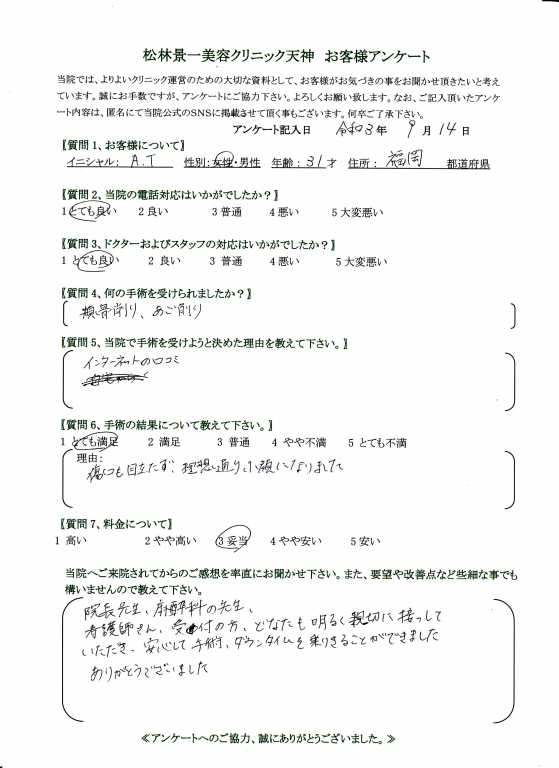 松林景一美容クリニック天神 お客様アンケート
当院では、よりよいクリニック運営のための大切な資料として、お客様がお気づきの事をお聞かせ頂きたいと考え
ています。誠にお手数ですが、アンケートにご協力下さい。よろしくお願い致します。なお、ご記入頂いたアンケ
ート内容は、匿名にて当院公式のSNSに掲載させて頂く事もございます。何卒ご了承下さい。
アンケート記入日 令和3年 9月14日
〖質問1、お客様について〗
イニシャル: A.T 性別:女性・男性 年齢:31才 住所:福岡 都道府県
〖質問2、当院の電話対応はいかがでしたか?〗
1 とても良い 2 良い 3 普通 4 悪い 5 大変悪い
〖質問3、ドクターおよびスタッフの対応はいかがでしたか?〗
1 とても良い 2 良い 3 普通 4 悪い 5 大変悪い
〖質問4、何の手術を受けられましたか?〗
頬骨削り、あご削り
〖質問5、当院で手術を受けようと決めた理由を教えて下さい。〗
インターネットの口コミ
〖質問6、手術の結果について教えて下さい。〗
1 とても満足 2 満足 3 普通 4 やや不満 5 とても不満
理由:
傷口も目立たず、理想通り小顔になりました
〖質問7、料金について〗
1 高い 2 やや高い 3 妥当 4 やや安い 5 安い
当院へご来院されてからのご感想を率直にお聞かせ下さい。また、要望や改善点など些細な事でも
構いませんので教えて下さい。
院長先生、麻酔科の先生、
看護師さん、受付の方、どなたも明るく親切に接して
いただき、安心して手術、ダウンタイムを乗りきることができました
ありがとうございました
≪アンケートへのご協力、誠にありがとうございました。≫